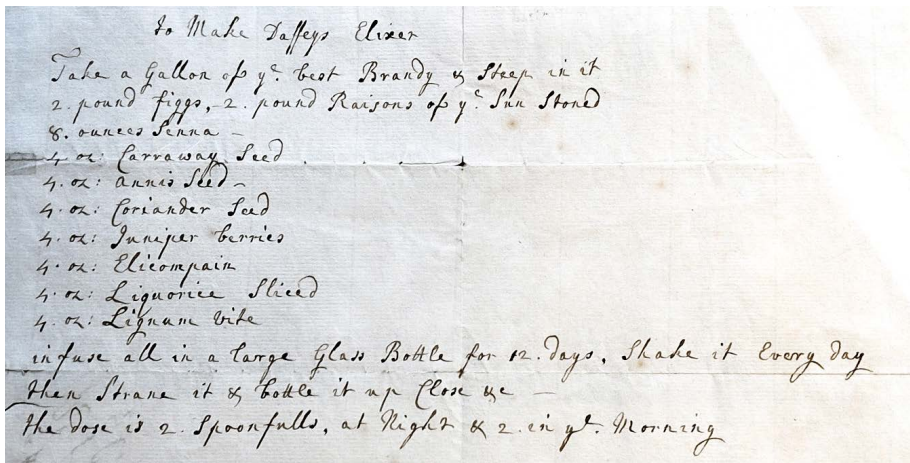 to Make Daffeys Elixer
Take a Gallon of yᵉ. best Brandy & Steep in it
2. pound figgs, - 2. pound Raisons of yᵉ. Sun Stoned
8. ounces Senna -
4 oz: Carraway Seed
4. oz: annis Seed -
4. oz: Coriander Seed
4. oz: Juniper berries
4. oz: Elicompain
4. oz: Liquorice Sliced
4. oz: Lignum vite
infuse all in a large Glass Bottle for 12. days, Shake it Every day
then Strane it & bottle it up Close &c -
the dose is 2. Spoonfulls, at Night & 2. in yᵉ. Morning